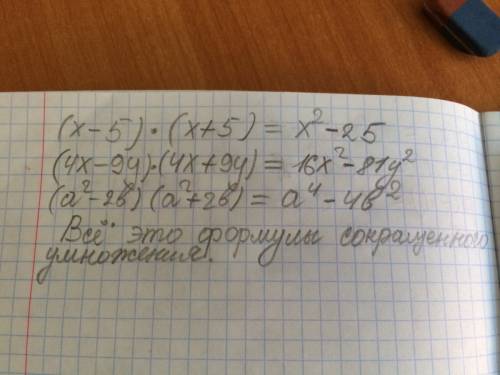 (x-5)·(x+5) = x²-25
(4x-9y)·(4x+9y) = 16x²-81y²
(a²-2b)(a²+2b) = a⁴-4b²
Всё это формулы сокращенного
умножения.